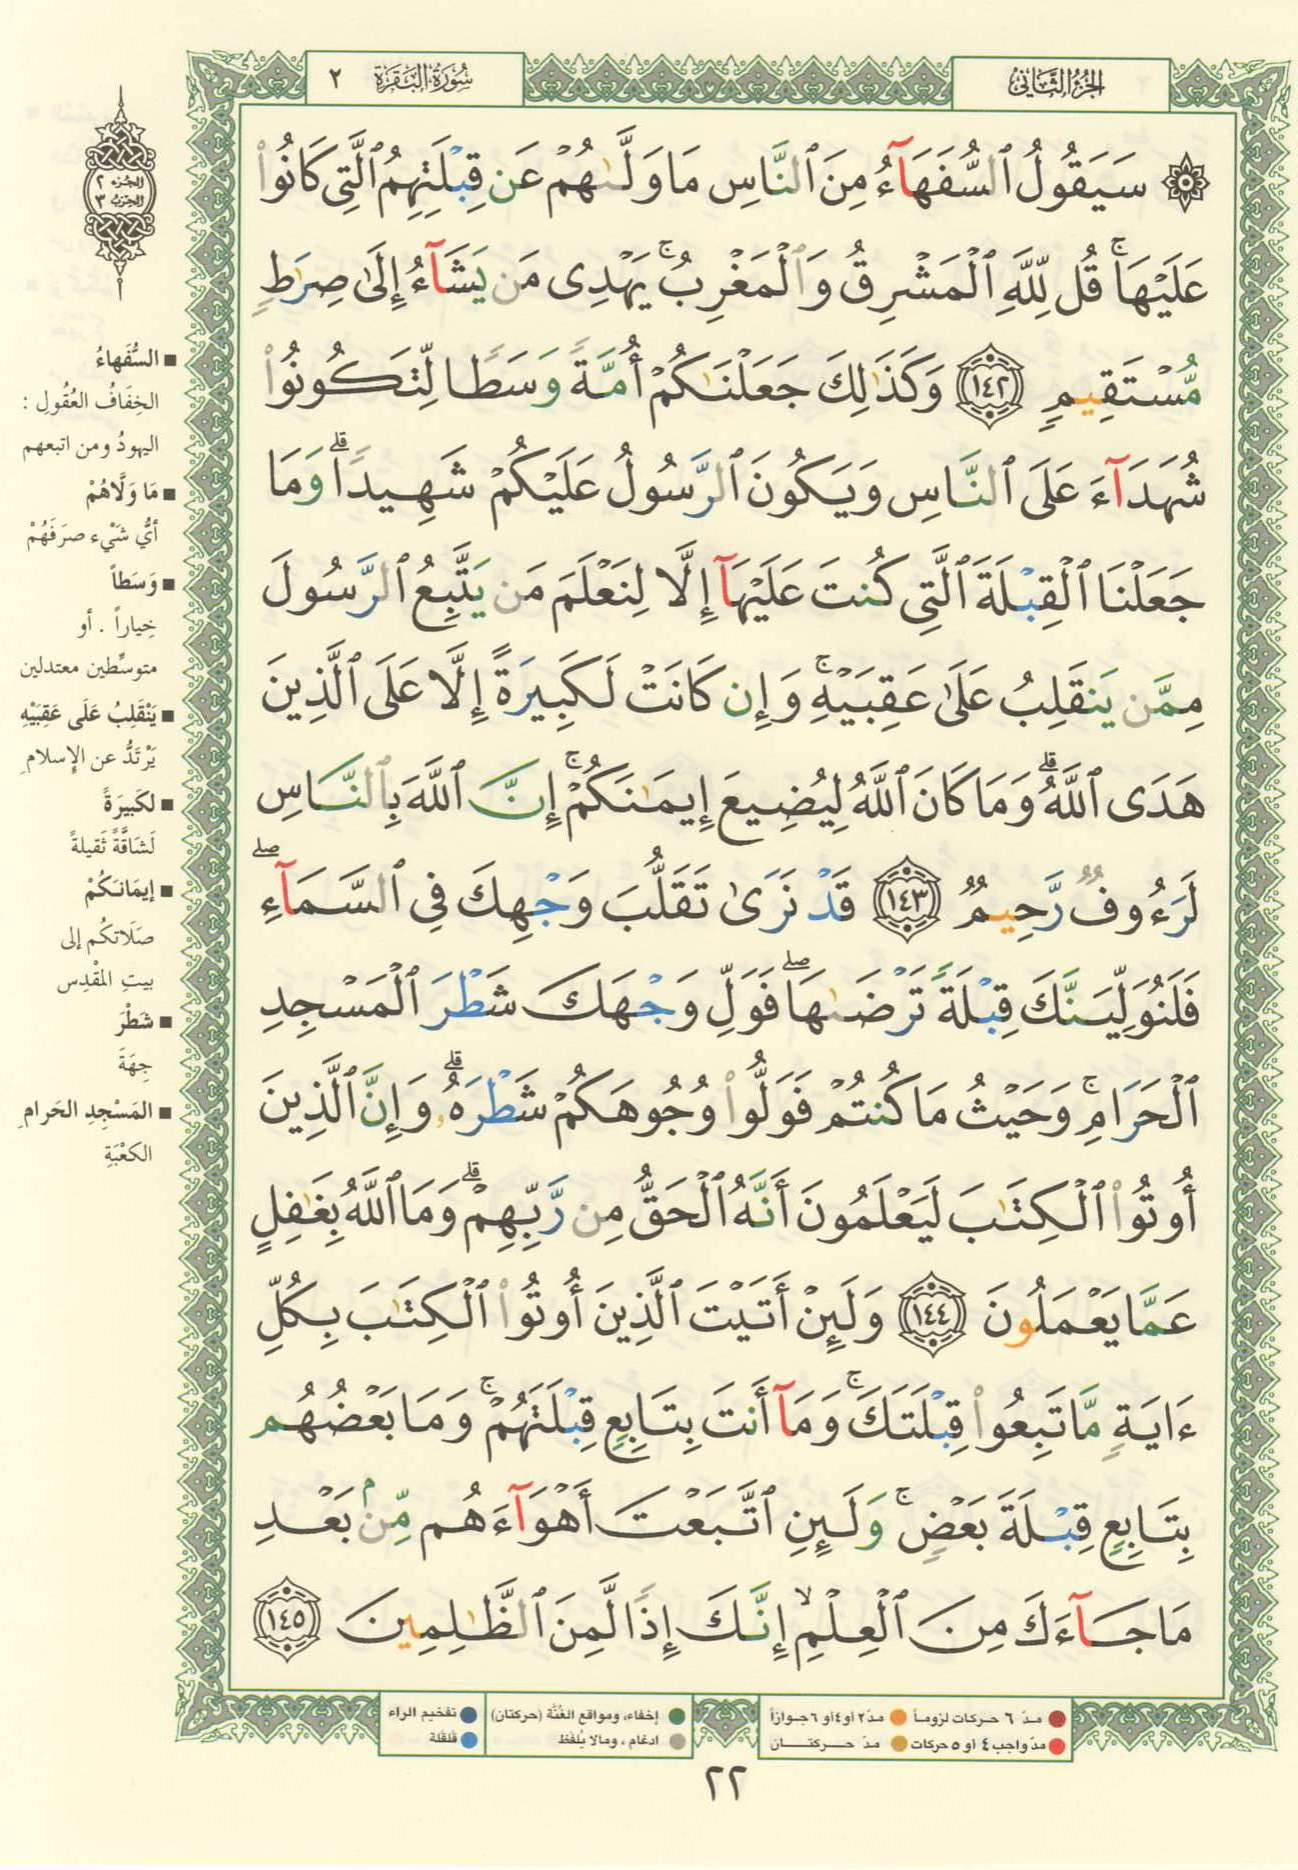 سُورَةُ البَقَرَةِ ٢
الجُزءُ الثَّانِي
الجزء ٢
الحزب ٣
۞ سَيَقُولُ ٱلسُّفَهَآءُ مِنَ ٱلنَّاسِ مَا وَلَّىٰهُمْ عَن قِبْلَتِهِمُ ٱلَّتِى كَانُوا۟
عَلَيْهَا ۚ قُل لِّلَّهِ ٱلْمَشْرِقُ وَٱلْمَغْرِبُ ۚ يَهْدِى مَن يَشَآءُ إِلَىٰ صِرَٰطٍ
مُّسْتَقِيمٍ ١٤٢ وَكَذَٰلِكَ جَعَلْنَٰكُمْ أُمَّةً وَسَطًا لِّتَكُونُوا۟
شُهَدَآءَ عَلَى ٱلنَّاسِ وَيَكُونَ ٱلرَّسُولُ عَلَيْكُمْ شَهِيدًا ۗ وَمَا
جَعَلْنَا ٱلْقِبْلَةَ ٱلَّتِى كُنتَ عَلَيْهَآ إِلَّا لِنَعْلَمَ مَن يَتَّبِعُ ٱلرَّسُولَ
مِمَّن يَنقَلِبُ عَلَىٰ عَقِبَيْهِ ۚ وَإِن كَانَتْ لَكَبِيرَةً إِلَّا عَلَى ٱلَّذِينَ
هَدَى ٱللَّهُ ۗ وَمَا كَانَ ٱللَّهُ لِيُضِيعَ إِيمَٰنَكُمْ ۚ إِنَّ ٱللَّهَ بِٱلنَّاسِ
لَرَءُوفٌ رَّحِيمٌ ١٤٣ قَدْ نَرَىٰ تَقَلُّبَ وَجْهِكَ فِى ٱلسَّمَآءِ ۖ
فَلَنُوَلِّيَنَّكَ قِبْلَةً تَرْضَىٰهَا ۖ فَوَلِّ وَجْهَكَ شَطْرَ ٱلْمَسْجِدِ
ٱلْحَرَامِ ۚ وَحَيْثُ مَا كُنتُمْ فَوَلُّوا۟ وُجُوهَكُمْ شَطْرَهُۥ ۗ وَإِنَّ ٱلَّذِينَ
أُوتُوا۟ ٱلْكِتَٰبَ لَيَعْلَمُونَ أَنَّهُ ٱلْحَقُّ مِن رَّبِّهِمْ ۗ وَمَا ٱللَّهُ بِغَٰفِلٍ
عَمَّا يَعْمَلُونَ ١٤٤ وَلَئِنْ أَتَيْتَ ٱلَّذِينَ أُوتُوا۟ ٱلْكِتَٰبَ بِكُلِّ
ءَايَةٍ مَّا تَبِعُوا۟ قِبْلَتَكَ ۚ وَمَآ أَنتَ بِتَابِعٍ قِبْلَتَهُمْ ۚ وَمَا بَعْضُهُم
بِتَابِعٍ قِبْلَةَ بَعْضٍ ۚ وَلَئِنِ ٱتَّبَعْتَ أَهْوَآءَهُم مِّنۢ بَعْدِ
مَا جَآءَكَ مِنَ ٱلْعِلْمِ ۙ إِنَّكَ إِذًا لَّمِنَ ٱلظَّٰلِمِينَ ١٤٥
■ السُّفَهاءُ
الخِفَافُ العُقُولِ :
اليهودُ ومن اتبعهم
■ مَا وَلَّاهُمْ
أيُّ شَيْء صرَفَهُمْ
■ وَسَطاً
خِياراً . أو
متوسِّطين معتدلين
■ يَنْقَلِبُ عَلَى عَقِبَيْهِ
يَرْتَدُّ عن الإسلامِ
■ لكَبيرَةً
لَشَاقَّةً ثَقيلةً
■ إيمَانكُمْ
صَلَاتكُم إلى
بيتِ المقْدِس
■ شَطْرَ
جِهَةَ
■ المَسْجِدِ الحَرامِ
الكعْبَةِ
مدّ ٦ حركات لزوماً
مدّ ٢ أو ٤ أو ٦ جوازاً
مدّ واجب ٤ أو ٥ حركات
مدّ حركتان
إخفاء، ومواقع الغُنَّة (حركتان)
ادغام ، ومالا يُلفَظ
تفخيم الراء
قلقلة
٢٢